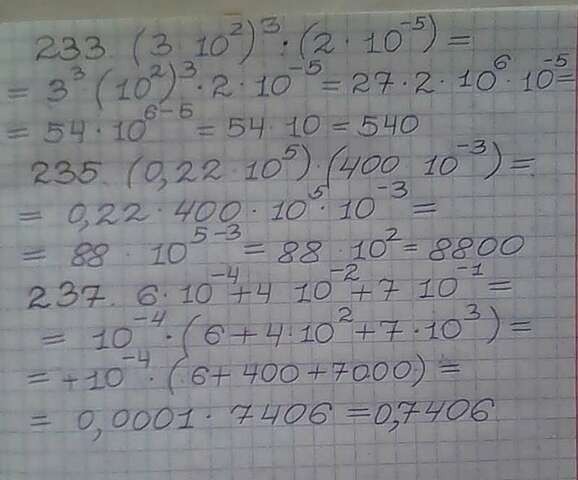 233. (3·10²)³·(2·10⁻⁵) =
= 3³(10²)³·2·10⁻⁵ = 27·2·10⁶·10⁻⁵ =
= 54·10⁶⁻⁵ = 54·10 = 540
235. (0,22·10⁵)·(400 10⁻³) =
= 0,22·400·10⁵·10⁻³ =
= 88 · 10⁵⁻³ = 88 ·10² = 8800
237. 6·10⁻⁴+4 10⁻²+7 10⁻¹ =
= 10⁻⁴·(6+4·10²+7·10³) =
= +10⁻⁴·(6+400+7000) =
= 0,0001·7406 = 0,7406